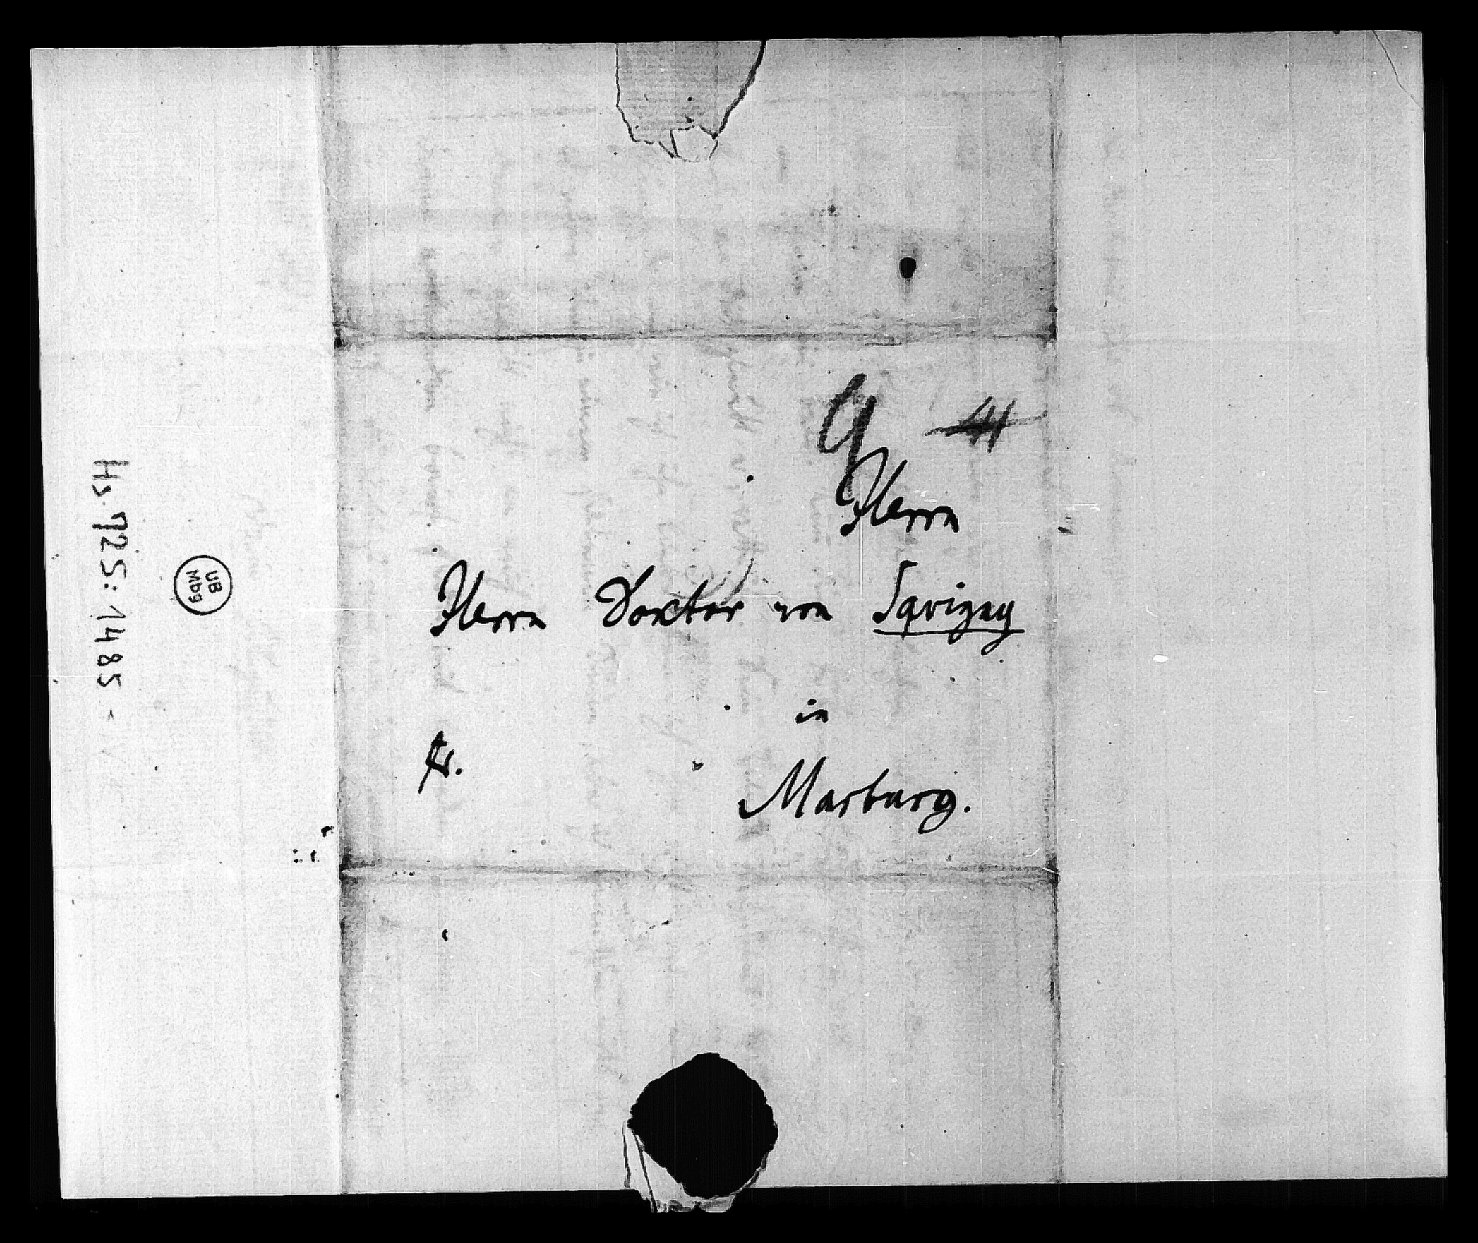 9
Herrn
Herrn Doktor von Savigny
in
fr.
Marburg.
Hs. 725: 1485
UB
Mbg